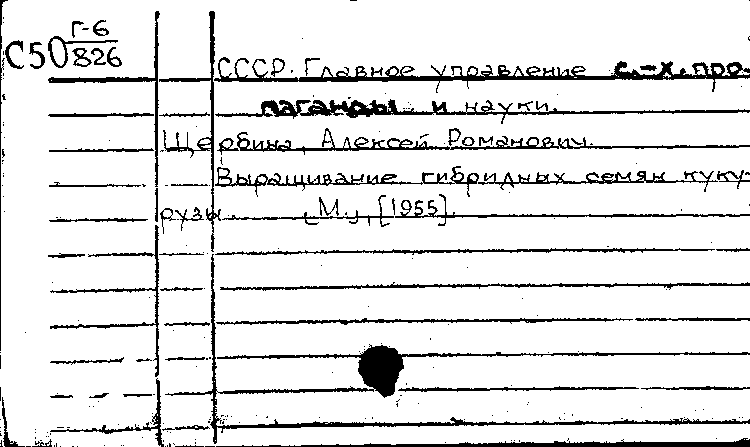 С50 Г-6
826
СССР. Главное управление с.-х. про-
паганды и науки.
Щербина, Алексей Романович.
Выращивание гибридных семян куку-
рузы. [М.], [1955].